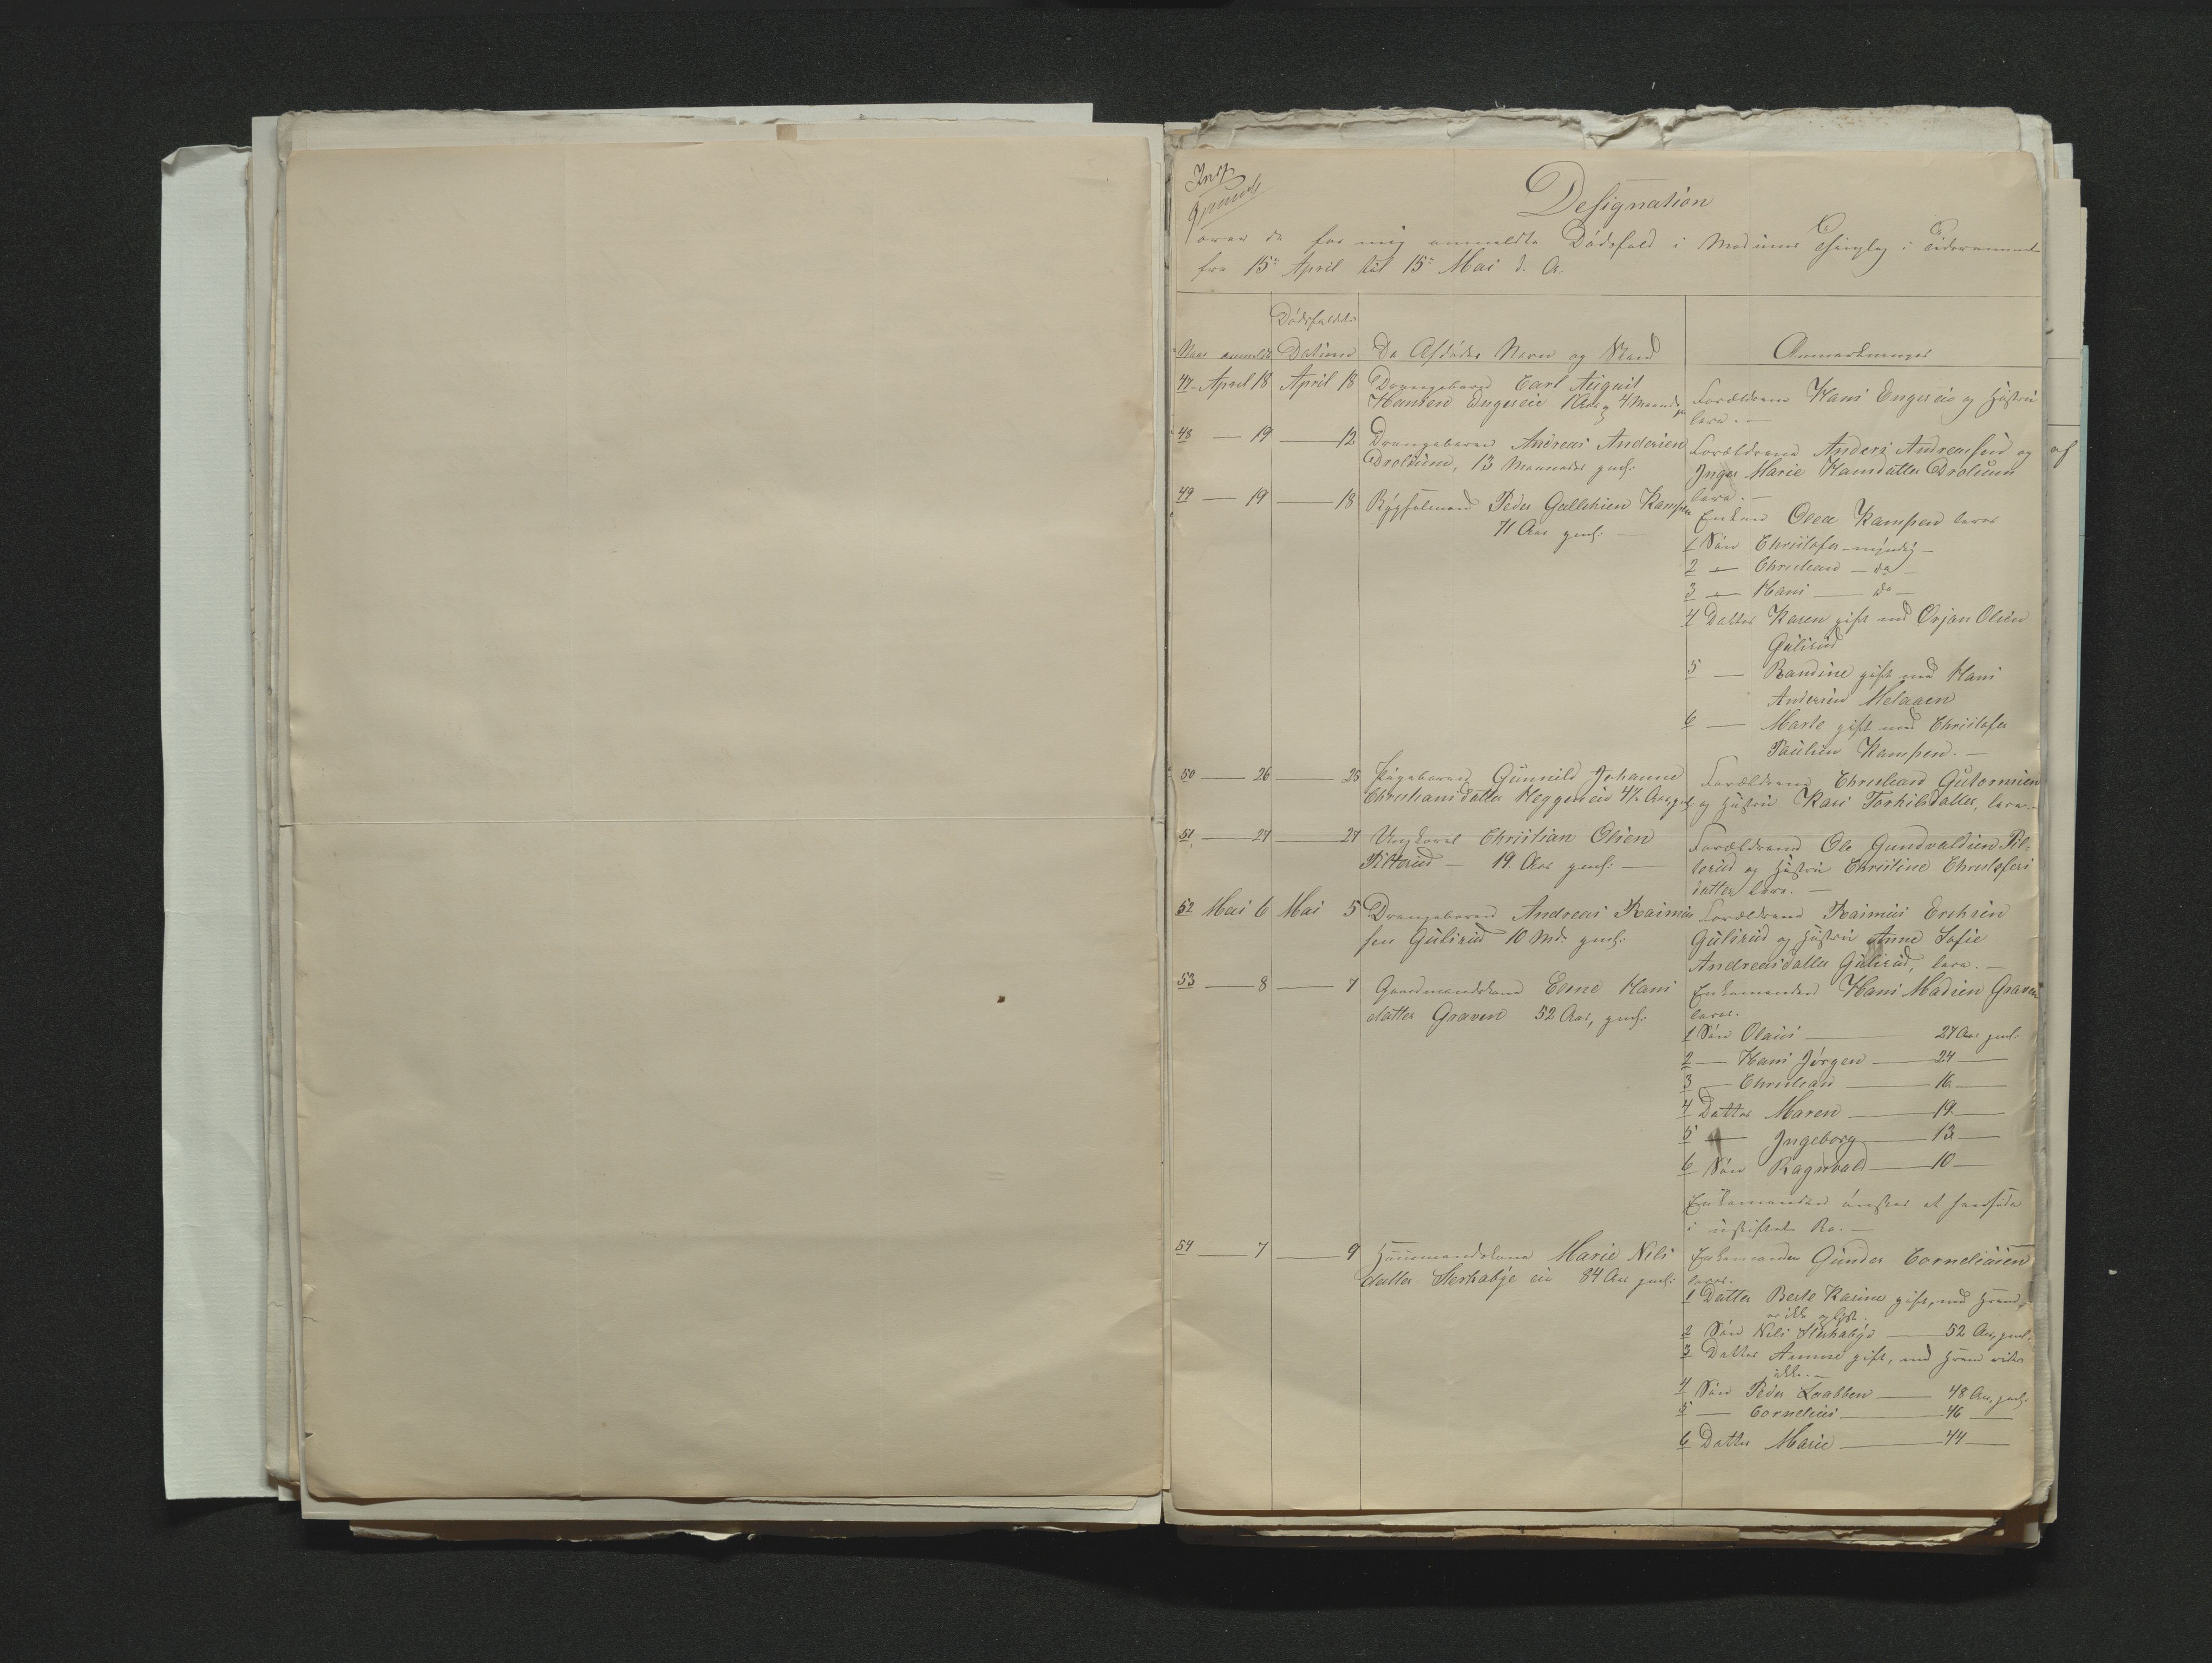 Designation
over de for mig anmeldte Dödsfald i Modums Thinglag i Tidsrummet
fra 15de April til 15de Mai d. A.
Dödsfaldets
Naar anmeldt Datum De Afdödes Navn og Stand Anmærkninger
47 - April 18 April 18 Drengebarn Carl August
Hansen Engereie 1 Aar og 4 Maaneder
Forældrene Hans Engereie og Hustru
leve. -
48 — 19 — 12 Drengebarn Andreas Andersen
Drolsum, 13 Maaneder gml:
Forældrene Anders Andreassen og
Inger Marie Hansdatter Drolsum
leve. -
49 — 19 — 18 Bygselmand Peder Gulliksen Kampen
71 Aar gml: —
Enken Olea Kampen lever
1 Sön Christofer - myndig -
2 — Christian — do —
3 — Hans — do —
4 Datter Karen gift med Örjan Olsen
Gulsrud
5 — Randine gift med Hans
Andersen Melaaen
6 — Marte gift med Christofer
Paulsen Kampen. —
50 — 26 — 25 Pigebarn Gunnild Johanne
Christiansdatter Heggeneie 4½ Aar gml
Forældrene Christian Gutormsen
og Hustru Kari Torkilsdatter, leve. -
51 — 27 — 27 Ungkarl Christian Olsen
Pilterud — 19 Aar gml: —
Forældrene Ole Gundvaldsen Pil-
terud og Hustru Christine Christofers
datter leve. —
52 Mai 6 Mai 5 Drengebarn Andreas Rasmus
sen Gulsrud 10 Md: gml:
Forældrene Rasmus Erichsen
Gulsrud og Hustru Anne Sofie
Andreasdatter Gulsrud, leve. —
53 — 8 — 7 Gaardmandskone Eerne Hans
datter Graven 52 Aar, gml:
Enkemanden Hans Madsen Graven
lever.
1 Sön Olaus — 27 Aar gml:
2 — Hans Jörgen — 24 —
3 — Christian — 16 —
4 Datter Maren — 19 —
5 — Ingeborg — 13 —
6 Sön Ragnvald — 10 —
Enkemanden önsker at hensidde
i uskiftet Bo. —
54 — 7 — 9 Huusmandskone Marie Nils
datter Sterkabye eie 84 Aar gml:
Enkemanden Gunder Corneliusen
lever.
1 Datter Berte Karine gift, med Hvem,
er ikke oplyst.
2 Sön Nils Sterkabye — 52 Aar, gml.
3 Datter Anne gift, med Hvem vides
ikke. —
4 Sön Peder Loabben — 48 Aar, gml:
5 — Cornelius — 46 —
6 Datter Marie — 44 —
af